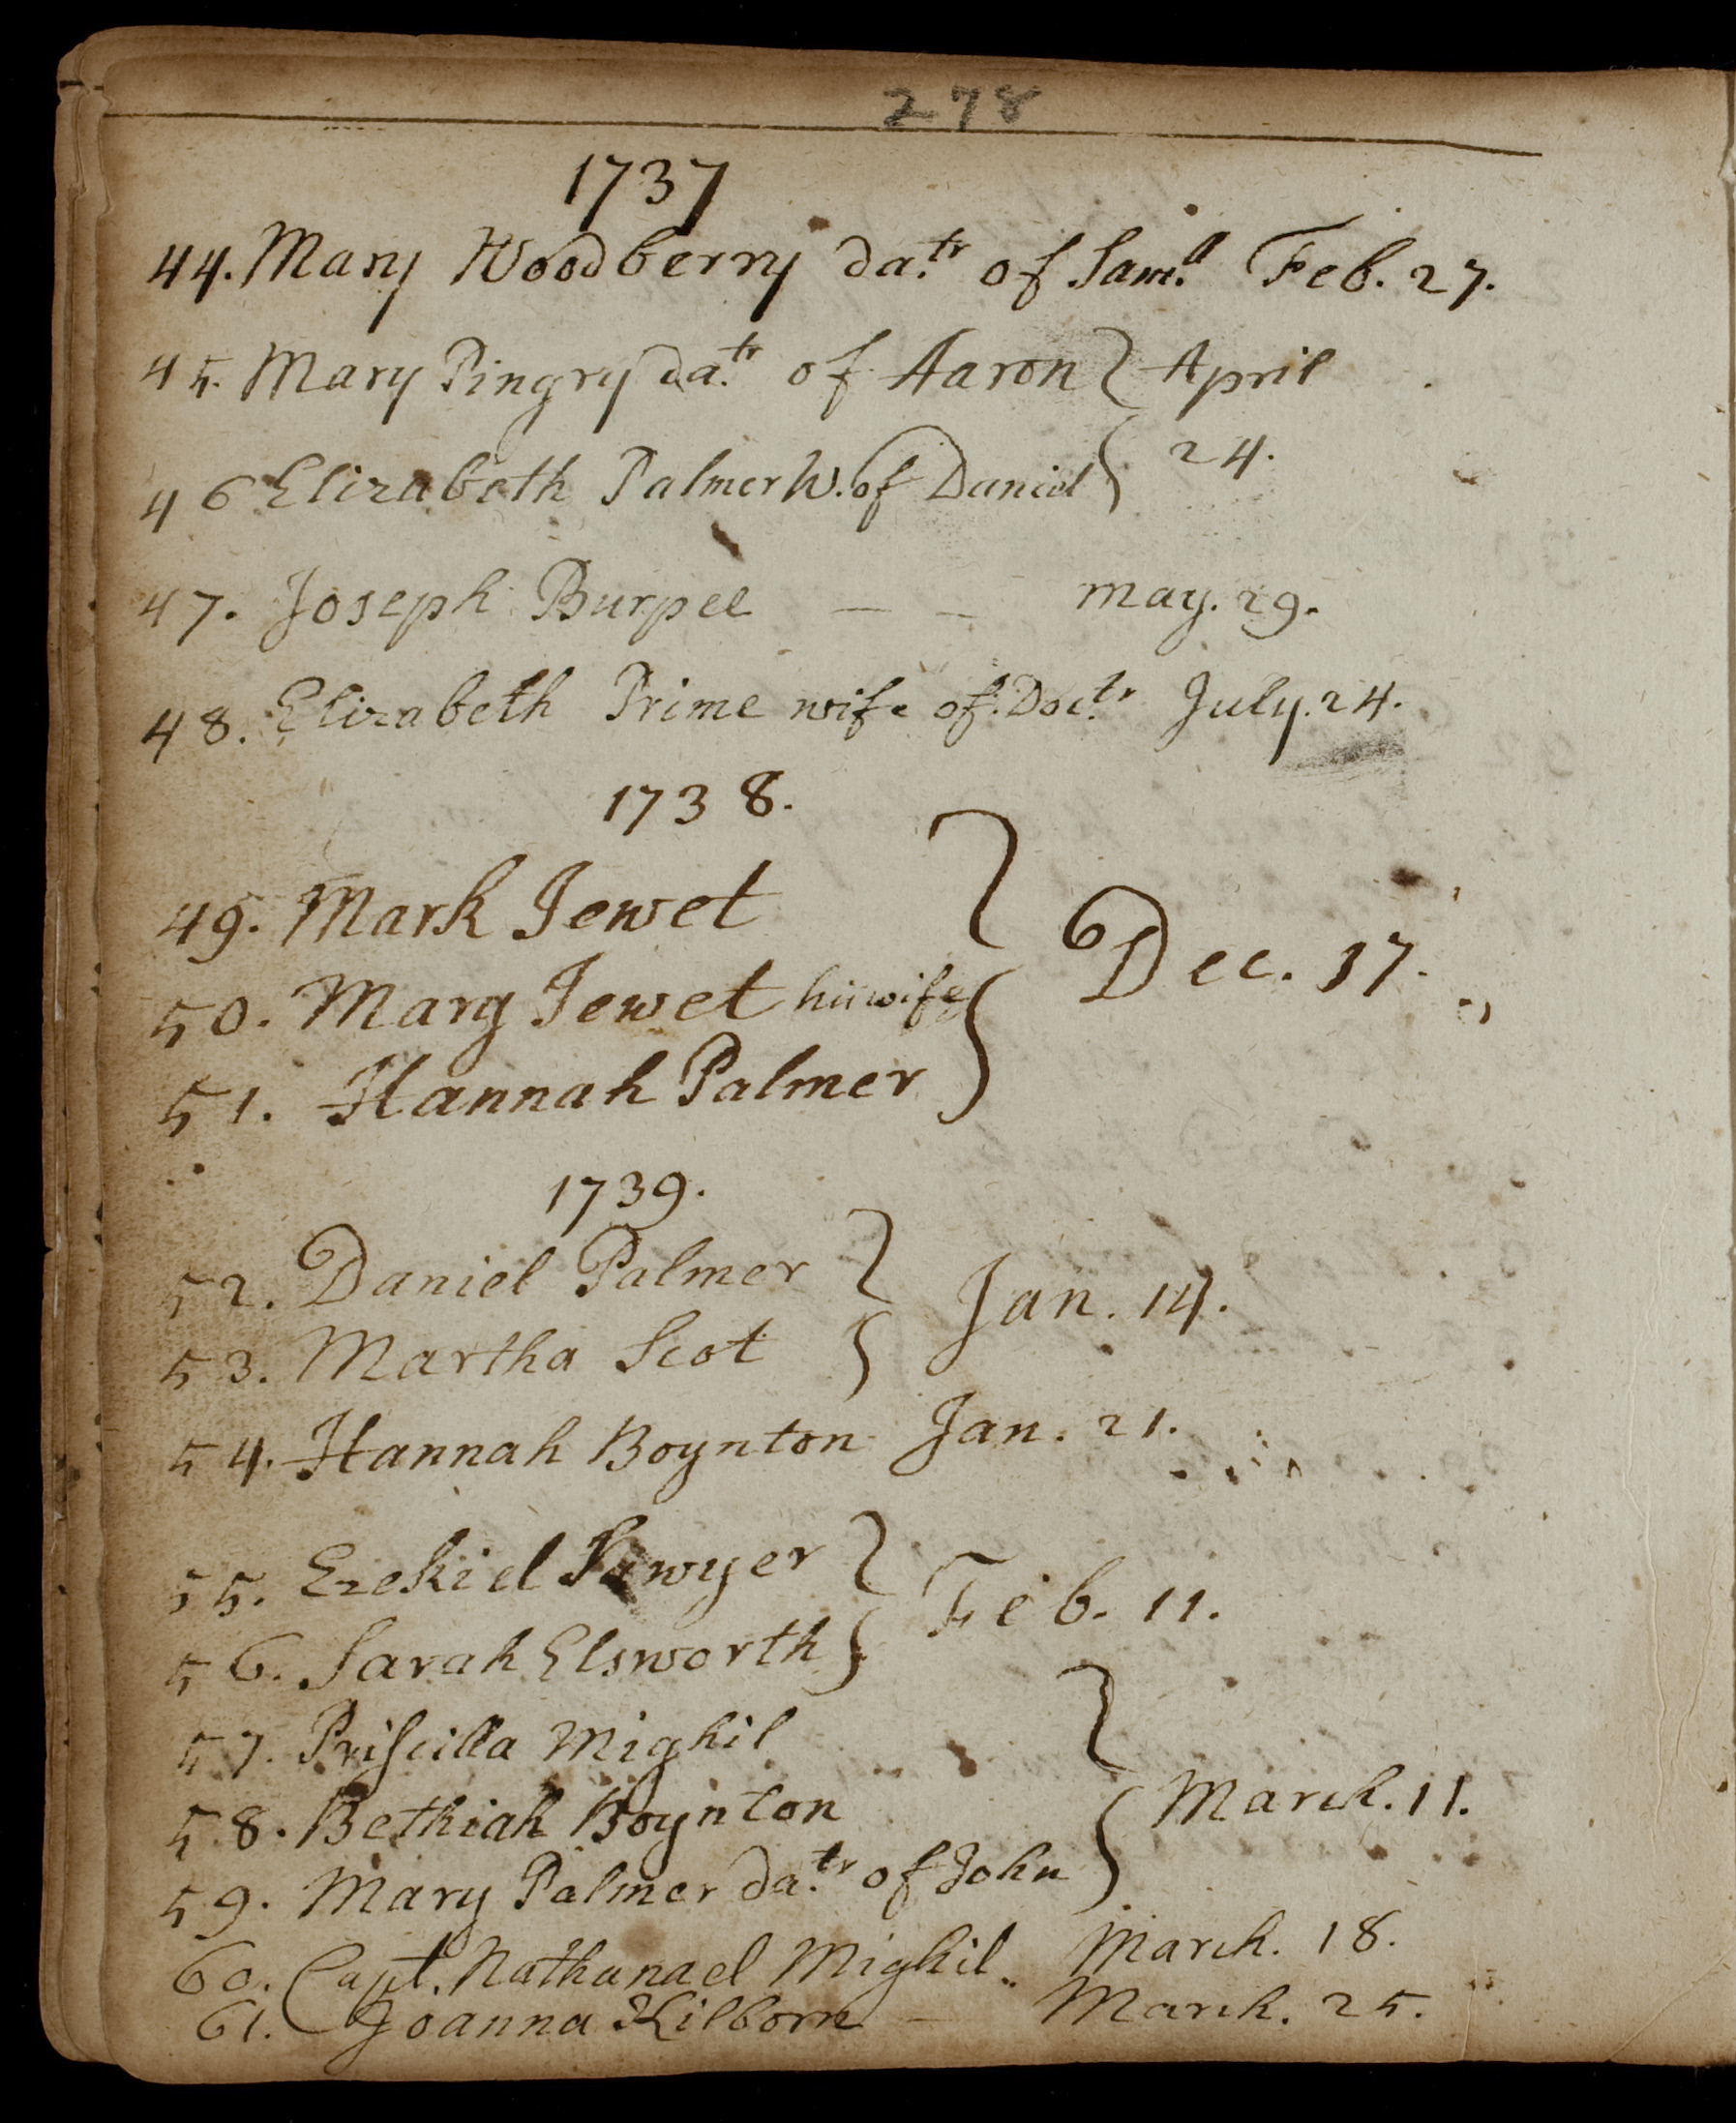 278
1737
44. Mary Woodberry da.tr of Sam.ll Feb. 27.
45. Mary Pingry da.tr of Aaron } April
46 Elizabeth Palmer W. of Daniel } 24.
47. Joseph Burpee — — may. 29.
48. Elizabeth Prime wife of Doc.tr July. 24.
1738.
49. Mark Jewet
50. Mary Jewet his wife } Dec. 17.
51. Hannah Palmer
1739.
52. Daniel Palmer } Jan. 14.
53. Martha Scot
54. Hannah Boynton Jan. 21.
55. Ezekiel Sawyer } Feb. 11.
56. Sarah Elsworth
57. Priscilla Mighil
58. Bethiah Boynton } March. 11.
59. Mary Palmer da.tr of John
60. Capt. Nathanael Mighil.. March. 18.
61. Joanna Kilborn — March. 25.